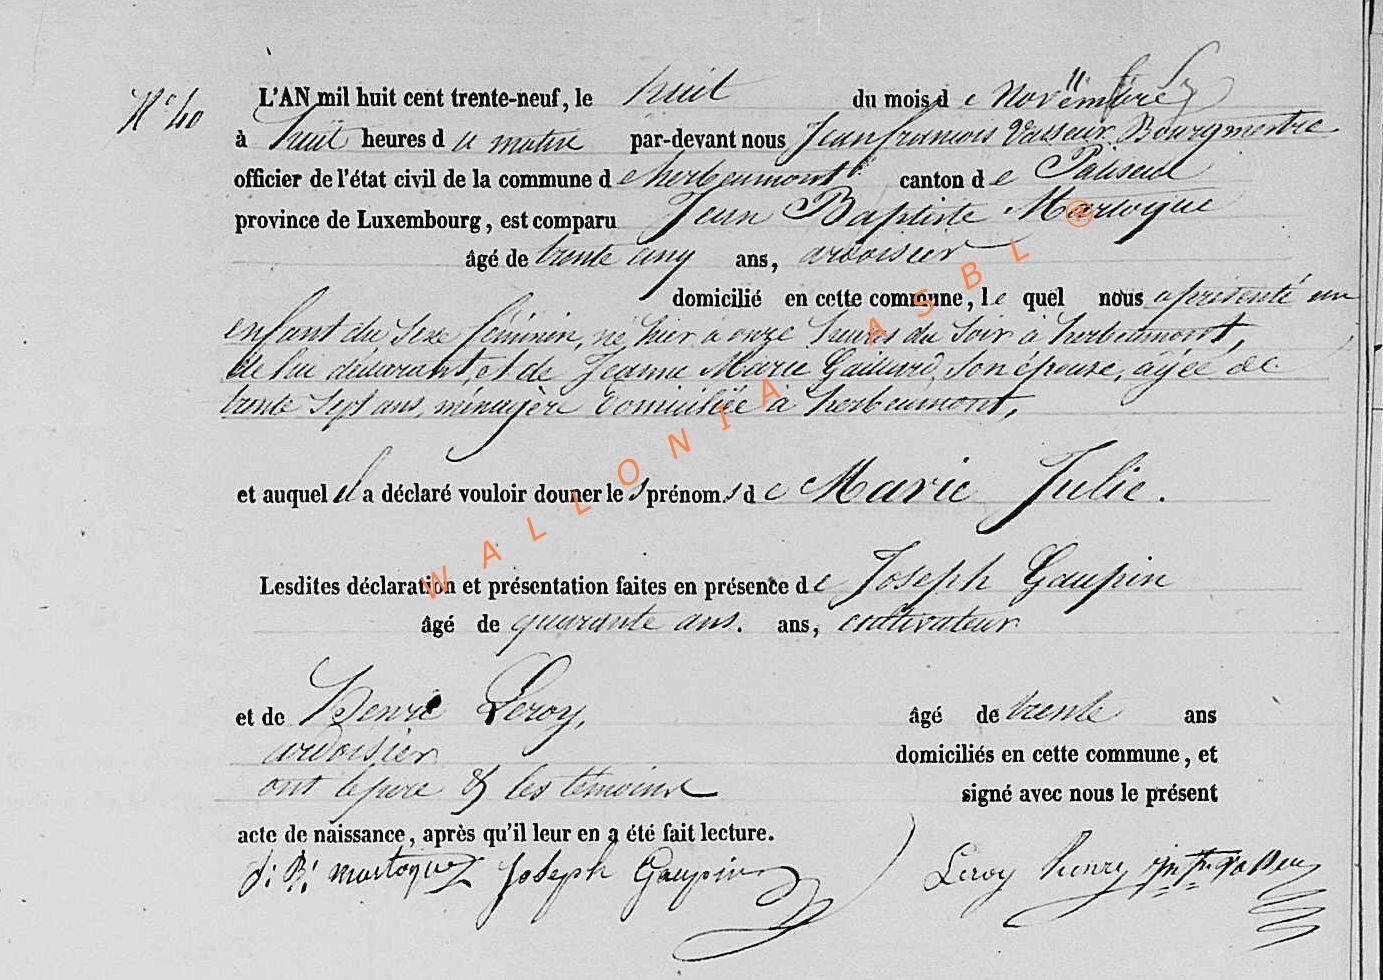 N° 40
L'AN mil huit cent trente-neuf, le huit du mois de Novembre
à huit heures du matin par-devant nous Jean françois Vasseur Bourgmestre
officier de l'état civil de la commune de herbeumont canton de Paliseul
province de Luxembourg, est comparu Jean Baptiste Martoque
âgé de trente cinq ans, ardoisier
domicilié en cette commune, lequel nous a présenté un
enfant du sexe féminin, né hier à onze heures du soir à herbeumont,
de lui déclarant, et de Jeanne Marie Gaillard, son épouse, agée de
trente sept ans, ménagère domiciliée à herbeumont,
et auquel il a déclaré vouloir donner les prénoms de Marie Julie.
Lesdites déclaration et présentation faites en présence de Joseph Gaupin
âgé de quarante ans. ans, cultivateur
et de Henri Leroy, âgé de trente ans
ardoisier domiciliés en cette commune, et
ont le père & les témoins signé avec nous le présent
acte de naissance, après qu'il leur en a été fait lecture.
J: B: martoque Joseph Gaupin Leroy henry
WALLONIA ASBL ®